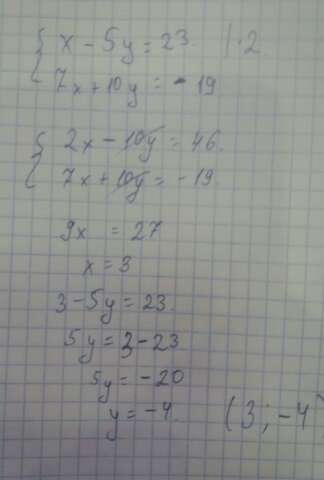 { x - 5y = 23. | · 2
7x + 10y = - 19
{ 2x - 10y = 46.
7x + 10y = - 19.
9x = 27
x = 3
3 - 5y = 23.
5y = 3 - 23
5y = -20
y = -4. (3 ; -4)